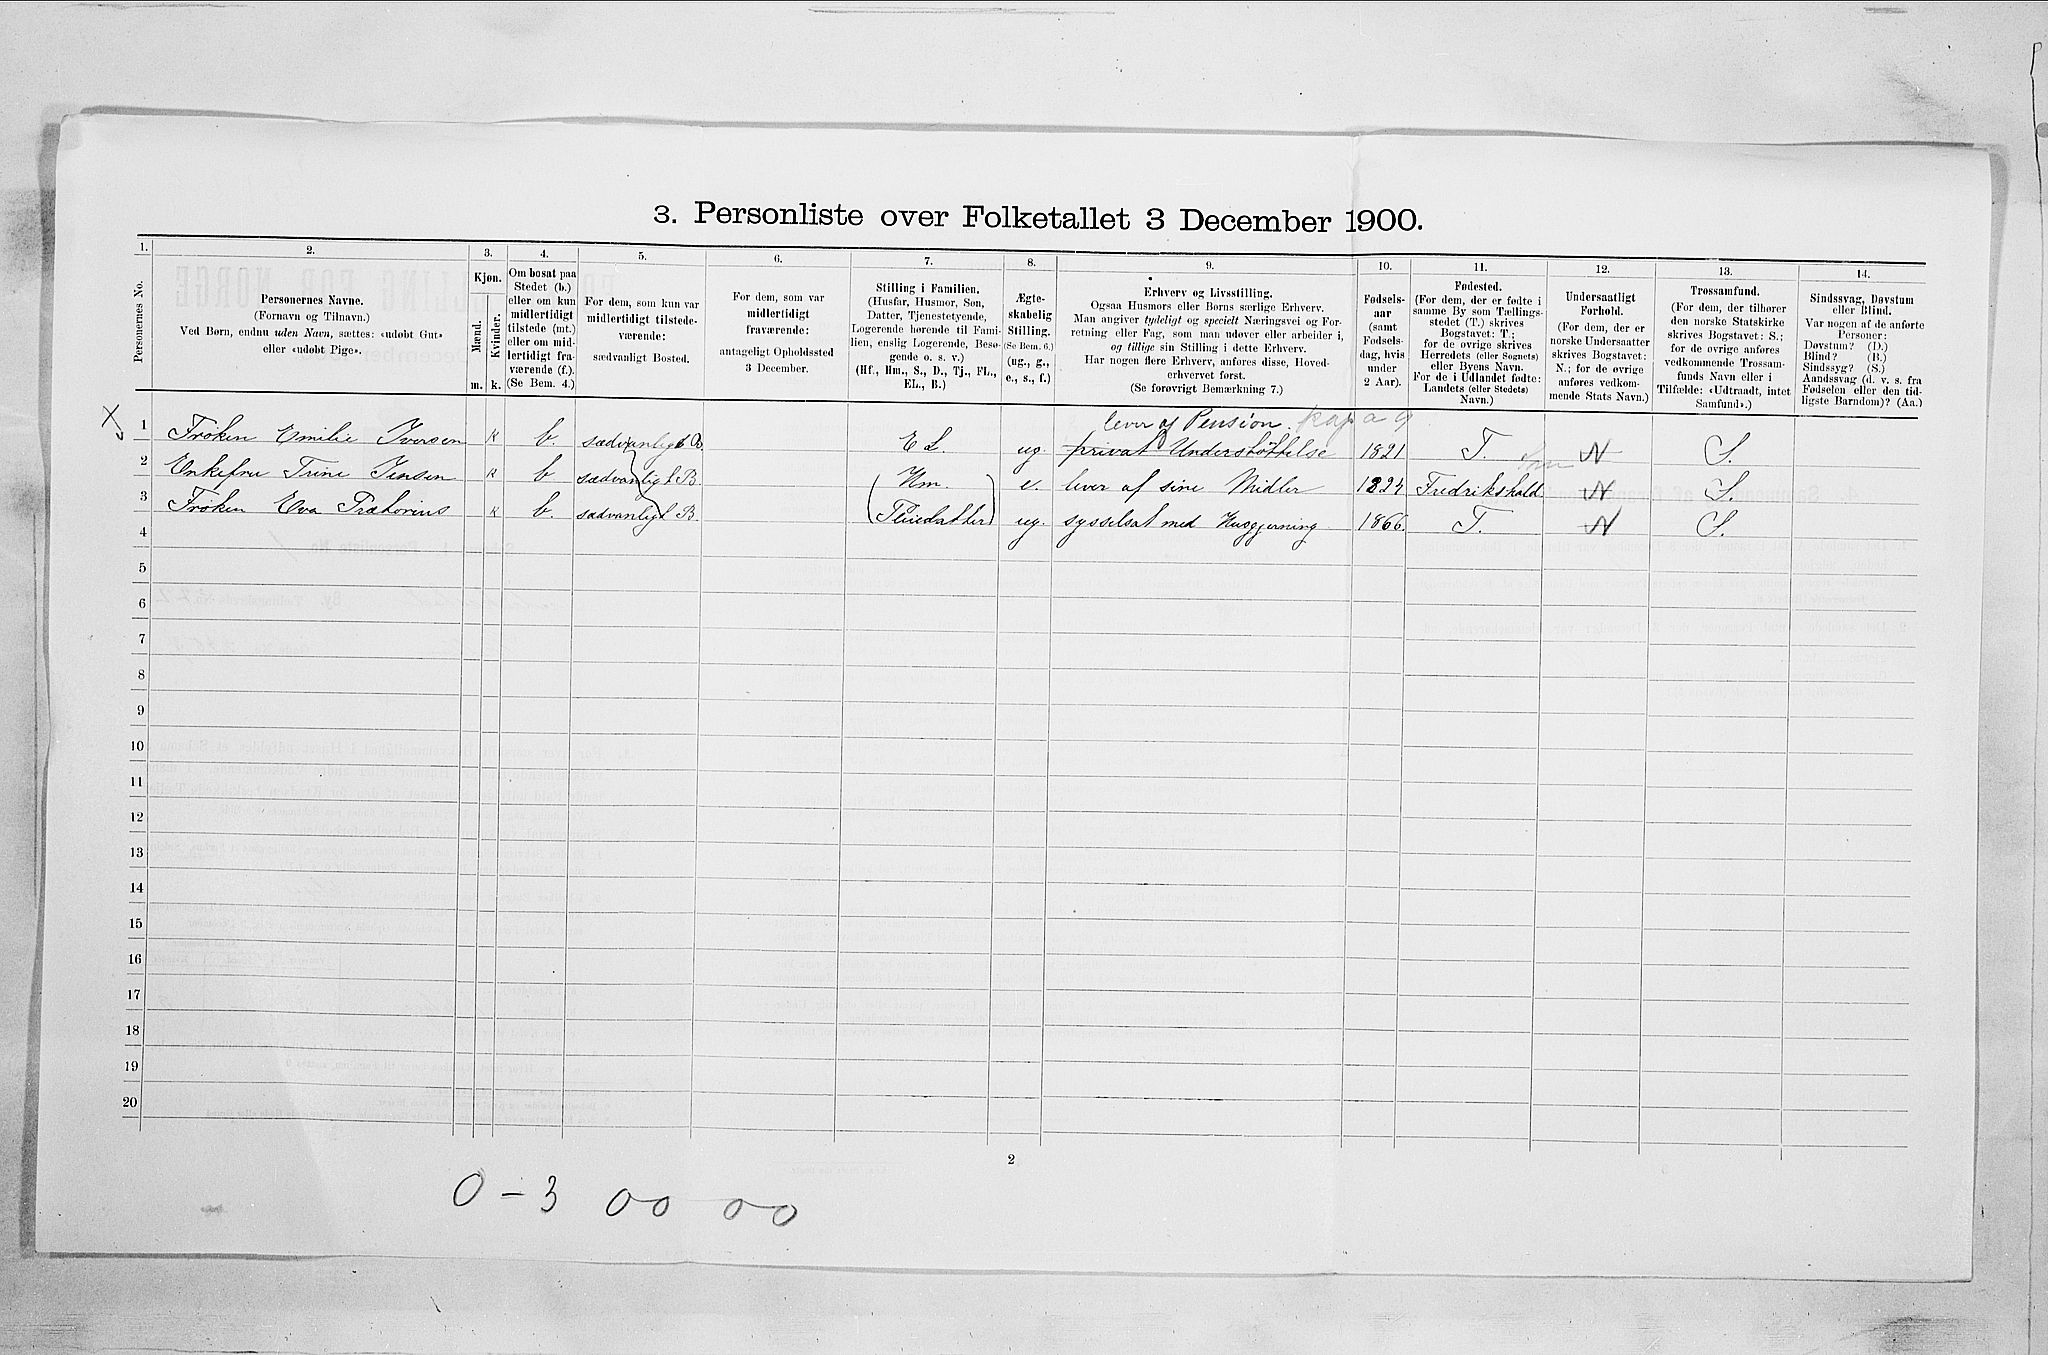 3. Personliste over Folketallet 3 December 1900.
1. 2. 3. 4. 5. 6. 7. 8. 9. 10. 11. 12. 13. 14.
Personernes No.
Personernes Navne.
(Fornavn og Tilnavn.)
Ved Børn, endnu uden Navn, sættes: «udøbt Gut»
eller «udøbt Pige».
Kjøn.
Mænd. Kvinder.
m. k.
Om bosat paa
Stedet (b.)
eller om kun
midlertidigt
tilstede (mt.)
eller om mid-
lertidigt fra-
værende (f.).
(Se Bem. 4.)
For dem, som kun var
midlertidigt tilstede-
værende:
sædvanligt Bosted.
For dem, som var
midlertidigt
fraværende:
antageligt Opholdssted
3 December.
Stilling i Familien.
(Husfar, Husmor, Søn,
Datter, Tjenestetyende,
Logerende hørende til Fami-
lien, enslig Logerende, Besø-
gende o. s. v.)
(Hf., Hm., S., D., Tj., FL.,
EL., B.)
Ægte-
skabelig
Stilling.
(Se Bem. 6.)
(ug., g.,
e., s., f.)
Erhverv og Livsstilling.
Ogsaa Husmors eller Børns særlige Erhverv.
Man angiver tydeligt og specielt Næringsvei og For-
retning eller Fag, som man udøver eller arbeider i,
og tillige sin Stilling i dette Erhverv.
Har nogen flere Erhverv, anføres disse, Hoved-
erhvervet først.
(Se forøvrigt Bemærkning 7.)
Fødsels-
aar
(samt
Fødsels-
dag, hvis
under
2 Aar).
Fødested.
(For dem, der er fødte i
samme By som Tællings-
stedet (T.) skrives
Bogstavet: T.;
for de øvrige skrives
Herredets (eller Sognets)
eller Byens Navn.
For de i Udlandet fødte:
Landets (eller Stedets)
Navn.)
Undersaatligt
Forhold.
(For dem, der er
norske Undersaatter
skrives Bogstavet:
N.; for de øvrige
anføres vedkom-
mende Stats Navn.)
Trossamfund.
(For dem, der tilhører
den norske Statskirke
skrives Bogstavet: S.;
for de øvrige anføres
vedkommende Trossam-
funds Navn eller i
Tilfælde: «Udtraadt, intet
Samfund».)
Sindssvag, Døvstum
eller Blind.
Var nogen af de anførte
Personer:
Døvstum? (D.)
Blind? (B.)
Sindssyg? (S.)
Aandssvag (d. v. s. fra
Fødselen eller den tid-
ligste Barndom)? (Aa.)
X
lever af Pension.
1 Frøken Emilie Iversen k b. sædvanligt B. E L. ug. privat Understøttelse 1821 T. N S.
2 Enkefru Trine Jensen k b sædvanligt B. Hm. e. lever af sine Midler 1824 Fredrikshald N S.
3 Frøken Eva Prætorius k b. sædvanligt B (Pleiedatter) ug. sysselsat med Husgjerning 1866. T. N S.
4
5
6
7
8
9
10
11
12
13
14
15
16
17
18
19
20
2
0 - 3 00 00